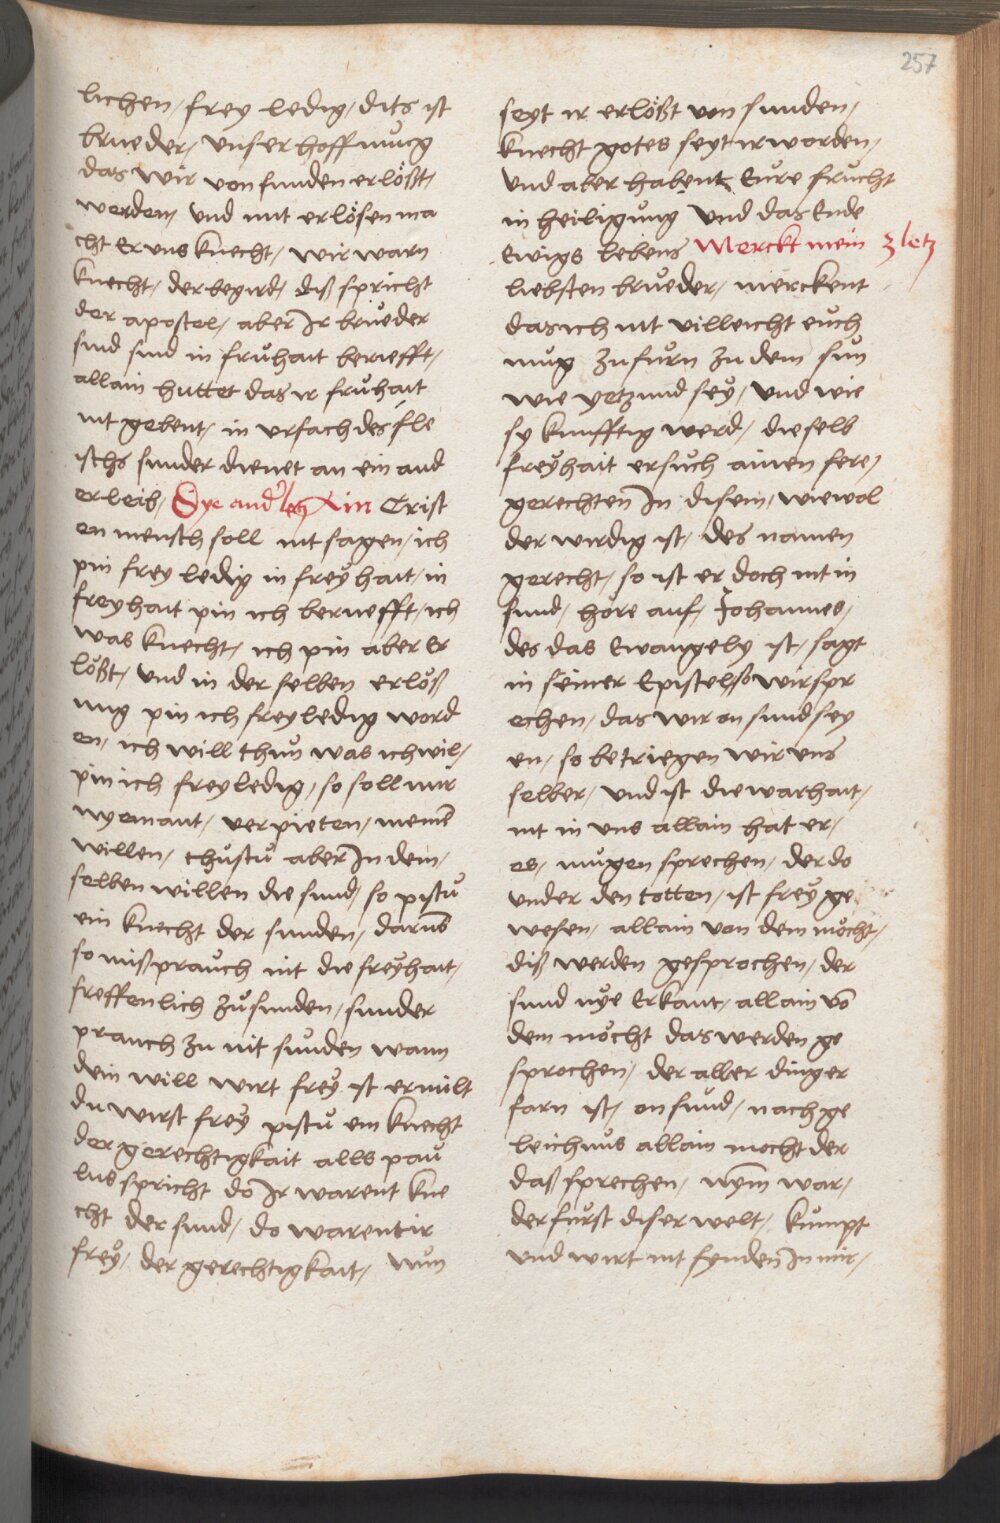 257
lichen / frey ledig / dits ist
brueder / unser hoffnung
das wir von sunden erlößt /
werden / und mit erlösen ma
cht Er uns knecht / wir warn
knecht / der begird / diß spricht
der apostel / aber Ir brueder
sind sind in fruhait berüefft /
allain huttet das ir fruhait
nit gebent / in ursach des fle
ischs sunder dienet an ein and
er leib / Dye and' letz Ain Crist
en mensch soll nit sagen / ich
pin frey ledig in freyhait / in
freyhait pin ich beruefft / ich
was knecht / ich pin aber er
lößt / und in der selben erlöß
ung pin ich frey ledig word
en / ich will thun was ich wil /
pin ich frey ledig / so soll mir
nyemant / verpieten / meinē
willen / thustu aber In dem /
selben willen die sund / so pistu
ein knecht der sunden / darūb
so mißprauch nit die freyhait /
freffenlich zu sunden / sunder
prauch zu nit sunden wann
dein will wirt frey ist er milt
du wirst frey pistu ein knecht
der gerechtigkait alls pau
lus spricht do Ir warent kne
cht der sund / do warent ir
frey / der gerechtigkait / Nun
seyt ir erlößt von sunden /
knecht gotes seyt ir worden /
und aber habent Eure frucht
in heiligung und das Ende
Ewigs lebens Merckt mein 3 letz
liebsten brueder / merckent
das ich nit villeicht euch
mug zufurn zu dem sun
wie yetzund sey / und wie
sy kunfftig werd / dieselb
freyhait ersuch ainen sere /
gerechten In disem / wiewol
der wirdig ist / des namen
gerecht / so ist er doch nit in
sund / höre auf / Johannes /
des das Ewangely ist / sagt
in seiner Epistel so wir spr
echen / das wir on sund sey
en / so betriegen wir uns
selber / und ist die warhait /
nit in uns allain hat er /
es / mugen sprechen / der do
under den totten / ist frey ge
wesen / allain von dem möcht /
diß werden gesprochen / der
sund nye Erkant / allain vō
dem möcht das werden ge
sprochen / der aller dinger
farn ist / on sund / nach ge
leichnus allain mocht der
daß sprechen / nym̄ war /
der furst diser welt / kumpt
und wirt nit fynden In mir /